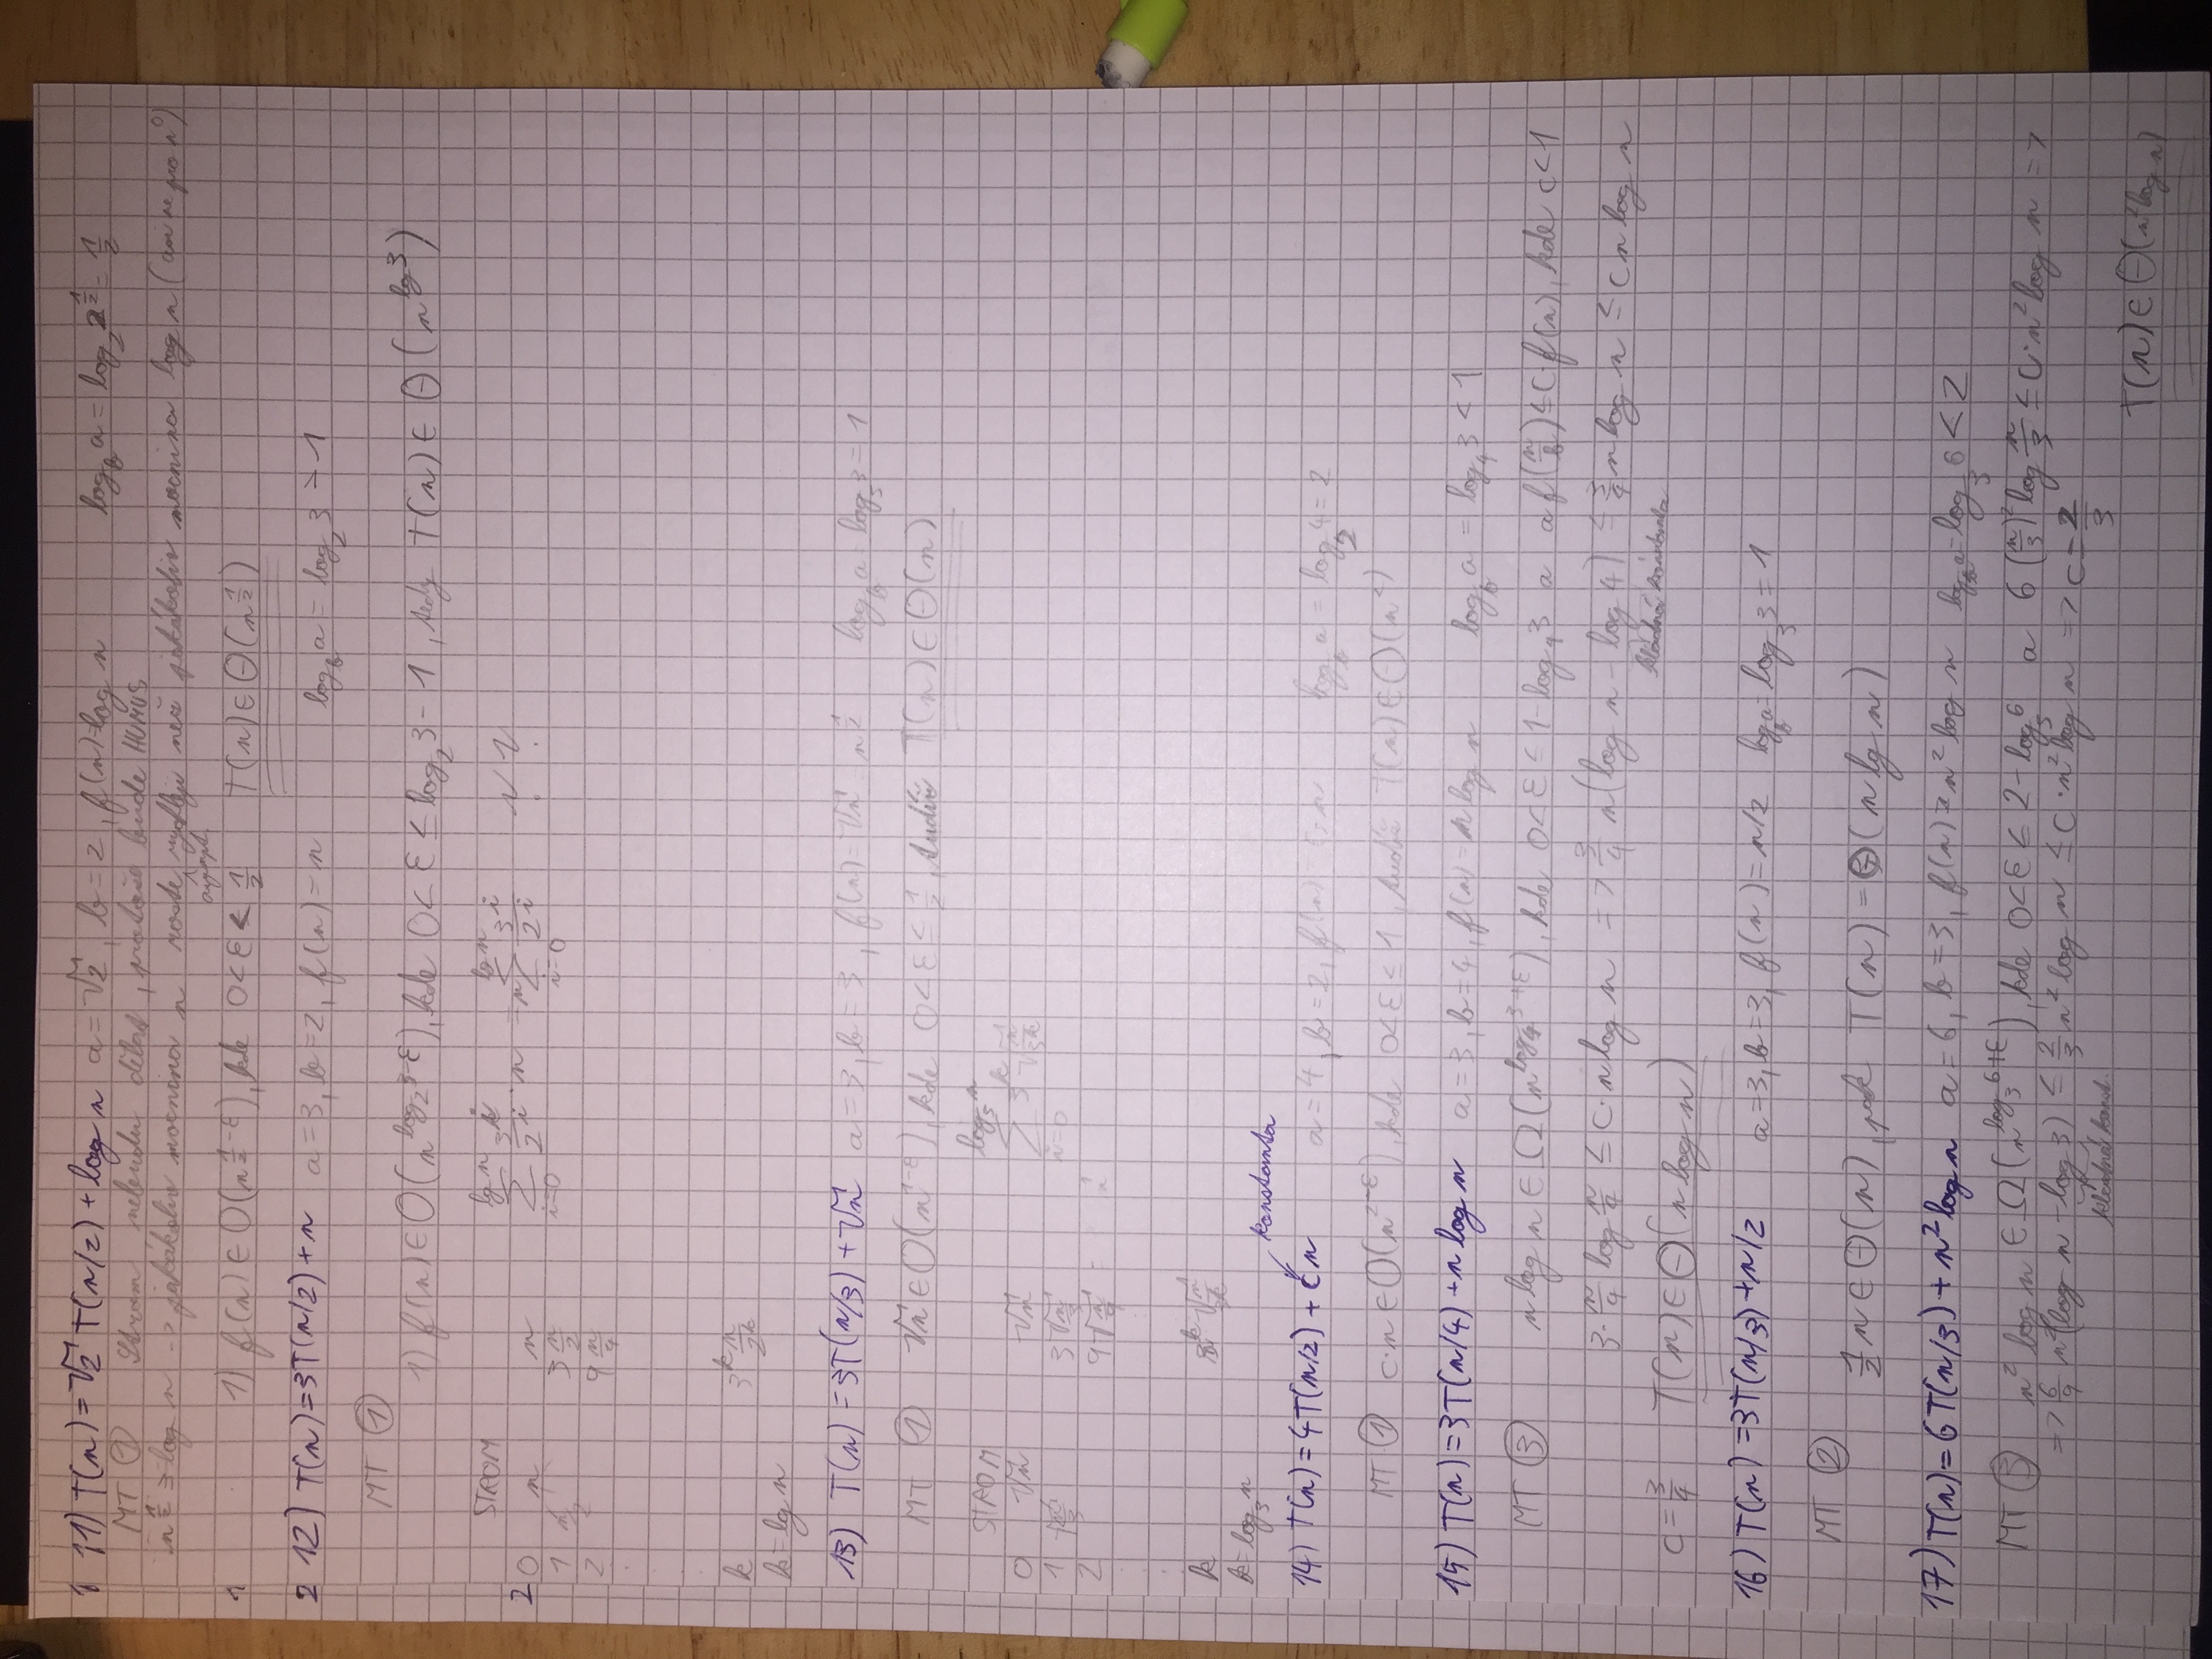 1 11) T(n)=√2 T(n/2) + log n a = √2, b = 2, f(n)=log n log_b a = log_2 2^(1/2) = 1/2
MT ① Strom nebudu dělat, protože bude HUMUS
n^(1/2) ≥ log n -> jakákoliv mocnina n roste rychleji než jakákoliv mocnina log n (ani ne pro n^0)
asympt.
1 1) f(n) ∈ O(n^(1/2-ε)), kde 0<ε<1/2 T(n) ∈ Θ(n^(1/2))
2 12) T(n)=3T(n/2)+n a=3, b=2, f(n)=n log_b a = log_2 3 > 1
MT ①
1) f(n) ∈ O(n^(log_2 3-ε)), kde 0<ε≤log_2 3 - 1, tedy T(n) ∈ Θ(n^(lg 3))
STROM ∑_{i=0}^{lg n} 3^i/2^i · n = n ∑_{i=0}^{lg n} 3^i/2^i
2 0 n n
1 n/2 3 n/2
2 9 n/4
k 3^k n/2^k
k=lg n
13) T(n) =3T(n/3) +√n a=3, b=3, f(n)=√n = n^(1/2) log_b a = log_3 3 = 1
MT ① √n ∈ O(n^(1-ε)), kde 0<ε≤1/2, tudíž T(n) ∈ Θ(n)
STROM ∑_{i=0}^{log_3 n} 3^k √(n/3^k)
0 √n √n
1 √(n/3) 3√(n/3)
2 9√(n/9)
k 3^k √(n/3^k)
k=log_3 n
konstanta
14) T(n)=4T(n/2) + c n a=4, b=2, f(n) = c·n log_b a = log_2 4=2
MT ① c·n ∈ O(n^(2-ε)), kde 0<ε≤1, tudíž T(n) ∈ Θ(n^2)
15) T(n)=3T(n/4) +n log n a=3, b=4, f(n)=n log n log_b a = log_4 3 < 1
MT ③ n log n ∈ Ω(n^(log_4 3+ε)), kde 0<ε≤1-log_4 3 a a f(n/b) ≤ c·f(n), kde c<1
3· n/4 log n/4 ≤ c·n log n => 3/4 n(log n - log 4) ≤ 3/4 n log n ≤ c n log n
kladná konstanta
c = 3/4 T(n) ∈ Θ(n log n)
16) T(n) =3T(n/3)+n/2 a=3, b=3, f(n)=n/2 log_b a=log_3 3=1
MT ②
1/2 n ∈ Θ(n), pak T(n) = Θ(n lg n)
17) T(n)=6T(n/3)+n² log n a=6, b=3, f(n)=n² log n log_b a=log_3 6 < 2
MT ③ n² log n ∈ Ω(n^(log_3 6+ε)), kde 0<ε≤2-log_3 6 a 6(n/3)² log n/3 ≤ c·n² log n =>
=> 6/9 n²(log n - log 3) ≤ 2/3 n² log n ≤ c·n² log n => c=2/3
kladná konst.
T(n) ∈ Θ(n² log n)